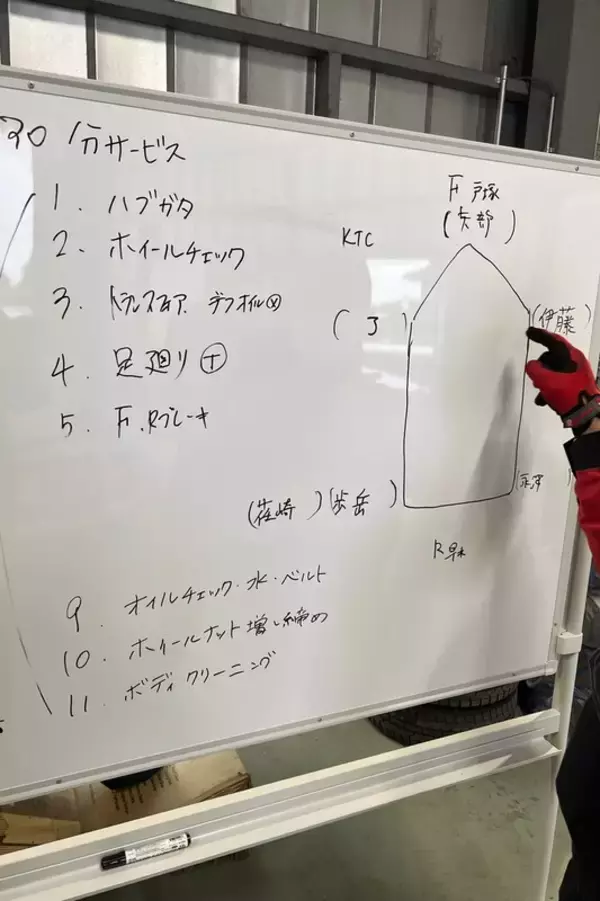 30分サービス
1. ハブガタ
2. ホイールチェック
3. デフオイル
4. 足廻り Ⓣ
5. F. Rブレーキ
9. オイルチェック・水・ベルト
10. ホイールナット増し締め
11. ボディクリーニング
KTC
F 戸塚
(矢部)
( 了 )
(伊藤)